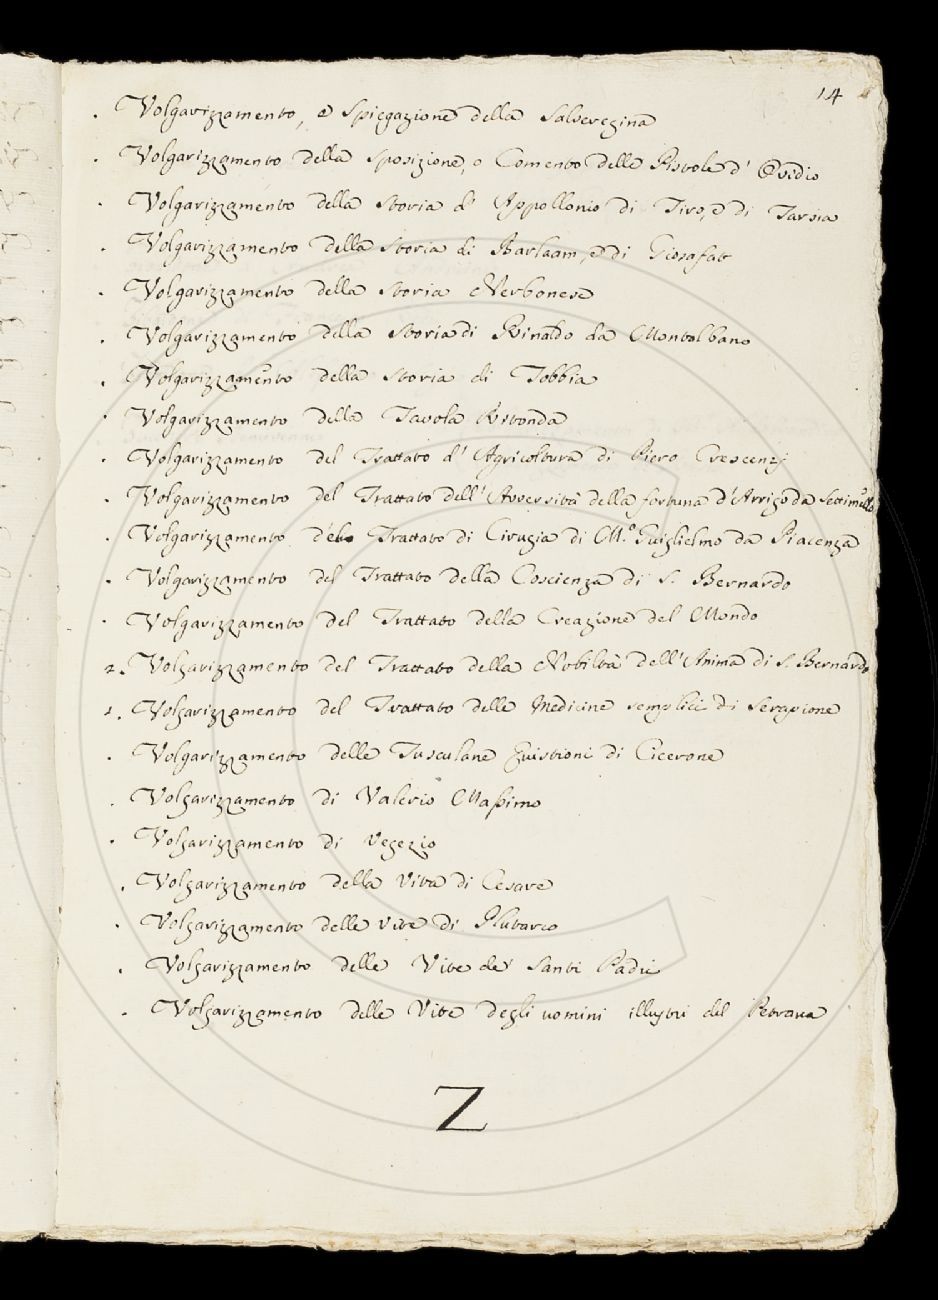 14
. Volgarizzamento, e Spiegazione della Salveregina
. Volgarizzamento della Sposizione, o Comento delle Pistole d' Ovidio
. Volgarizzamento della Storia d' Appollonio di Tiro, e di Tarsia
. Volgarizzamento della Storia di Barlaam, e di Giosafat
. Volgarizzamento della Storia Nerbonese
. Volgarizzamento della Storia di Rinaldo da Montalbano
. Volgarizzamento della Storia di Tobbia
. Volgarizzamento della Tavola Ritonda
. Volgarizzamento del Trattato d' Agricoltura di Piero Crescenzj
. Volgarizzamento del Trattato dell' Avversità della fortuna d' Arrigo da Settimello
. Volgarizzamento del Trattato di Cirugia di M.º Guiglielmo da Piacenza
. Volgarizzamento del Trattato della Coscienza di S. Bernardo
. Volgarizzamento del Trattato della Creazione del Mondo
2. Volgarizzamento del Trattato della Nobiltà dell' Anima di S. Bernardo
1. Volgarizzamento del Trattato delle Medicine semplici di Serapione
. Volgarizzamento delle Tusculane Quistioni di Cicerone
. Volgarizzamento di Valerio Massimo
. Volgarizzamento di Vegezio
. Volgarizzamento della Vita di Cesare
. Volgarizzamento delle vite di Plutarco
. Volgarizzamento delle Vite de' Santi Padri
. Volgarizzamento delle Vite degli uomini illustri del Petrarca
Z